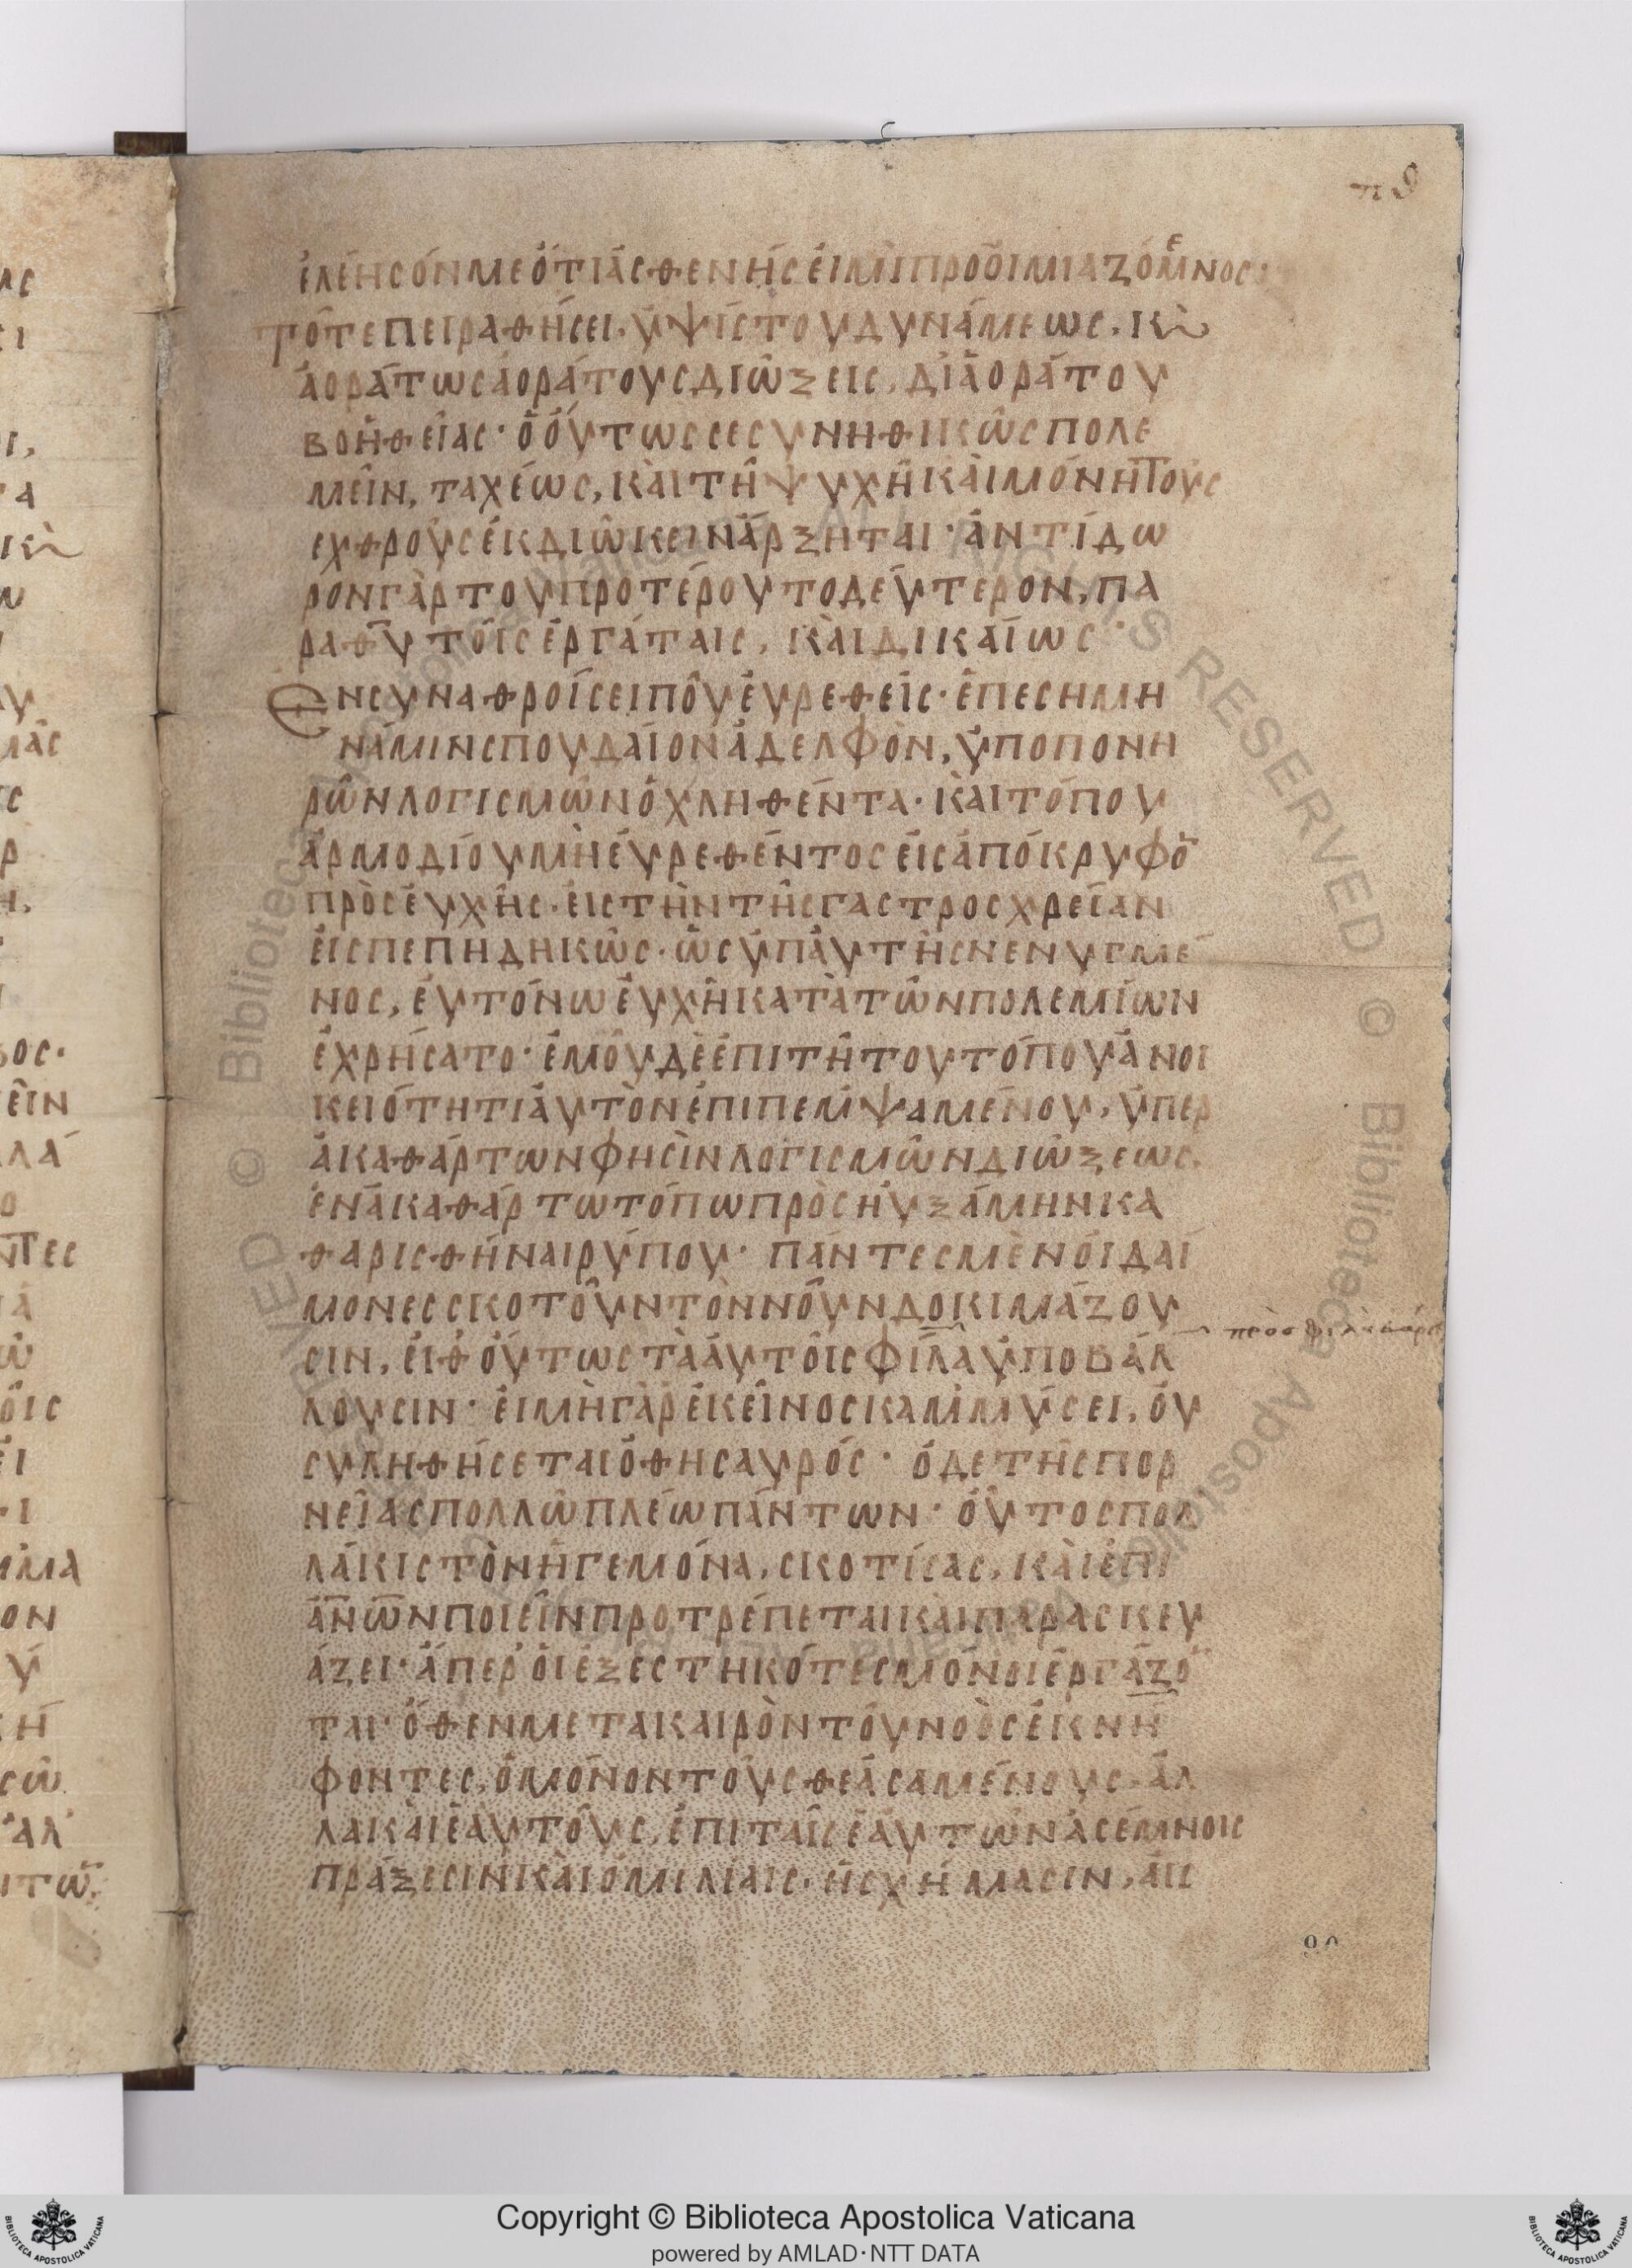 πθ
ἐλέησόν με ὅτι ἀσθενής εἰμι προοιμιαζόμενος·
τότε πειραθήσει. ὑψίστου δυνάμεως. κὰι
ἀοράτως ἀοράτους διώξεις. δι᾽ ἀοράτου
βοηθείας· ὁ οὕτως σε συνηθικῶς πολε
μεῖν, ταχέως, καὶ τῆ ψυχῆ καὶ μόνη τοὺς
εχθρους ἐκδιώκειν ἄρξηται· ἀντίδω
ρον γὰρ του προτέρου το δεύτερον, πα
ρα θῦ τοῖς ἐργάταις, καὶ δικαίως·
Εν συναθροίσει που εὑρεθείς· ἐπεσημη
νάμην σπουδαῖον ἀδελφὸν, ὑπο πονη
ρῶν λογισμῶν ὀχληθέντα· καὶ τόπου
ἁρμοδίου μὴ εὑρεθέντος εἰς ἀπόκρυφο̅
προσευχῆς. εἰς τὴν τῆς γαστρος χρείαν
εἰσπεπηδηκῶς· ὡς ὑπ᾽ αὐτῆς νενυγμέ
νος, εὐτόνω εὐχῆ κατὰ τῶν πολεμίων
ἐχρήσατο· ἐμοῦ δὲ ἐπι τῆ του τόπου ἀνοι
κειότητι ἀυτὸν ἐπιπεμψαμένου, ὑπερ
ἀκαθάρτων φησὶν λογισμῶν διώξεως.
ἐν ἀκαθάρτω τόπω προσηυξάμην κα
θαρισθῆναι ρύπου· πάντες μὲν οἱ δαί
μονες σκοτοῦν τὸν νοῦν δοκιμάζου
σιν, εἰθ οὕτως τὰ ἀυτοῖς φίλα ὑποβάλ
λουσιν· εἰ μὴ γὰρ ἐκεῖνος καμμύσει, οὐ
συληθήσεται ὁ θησαυρός· ὁ δε τῆς πορ
νείας πολλῶ πλέω πάντων· οὗτος πολ
λάκις τὸν ἡγεμόνα, σκοτίσας, καὶ ἐπι
α̅ν̅ω̅ν ποιεῖν προτρέπεται καὶ παρασκευ
άζει· ἅπερ οἱ ἐξεστηκότες μόνοι ἐργάζο̅
ται· ὅθεν μετα καιρὸν του νοὸς ἐκνή
φοντες, ὀ μόνον τοὺς θεασαμένους, ἀλ
λα καὶ ἑαυτοὺς, ἐπι ταῖς ἑαυτῶν ἀσέμνοις
πράξεσιν καὶ ὁμιλίαις· ἡ σχήμασιν, αἰς